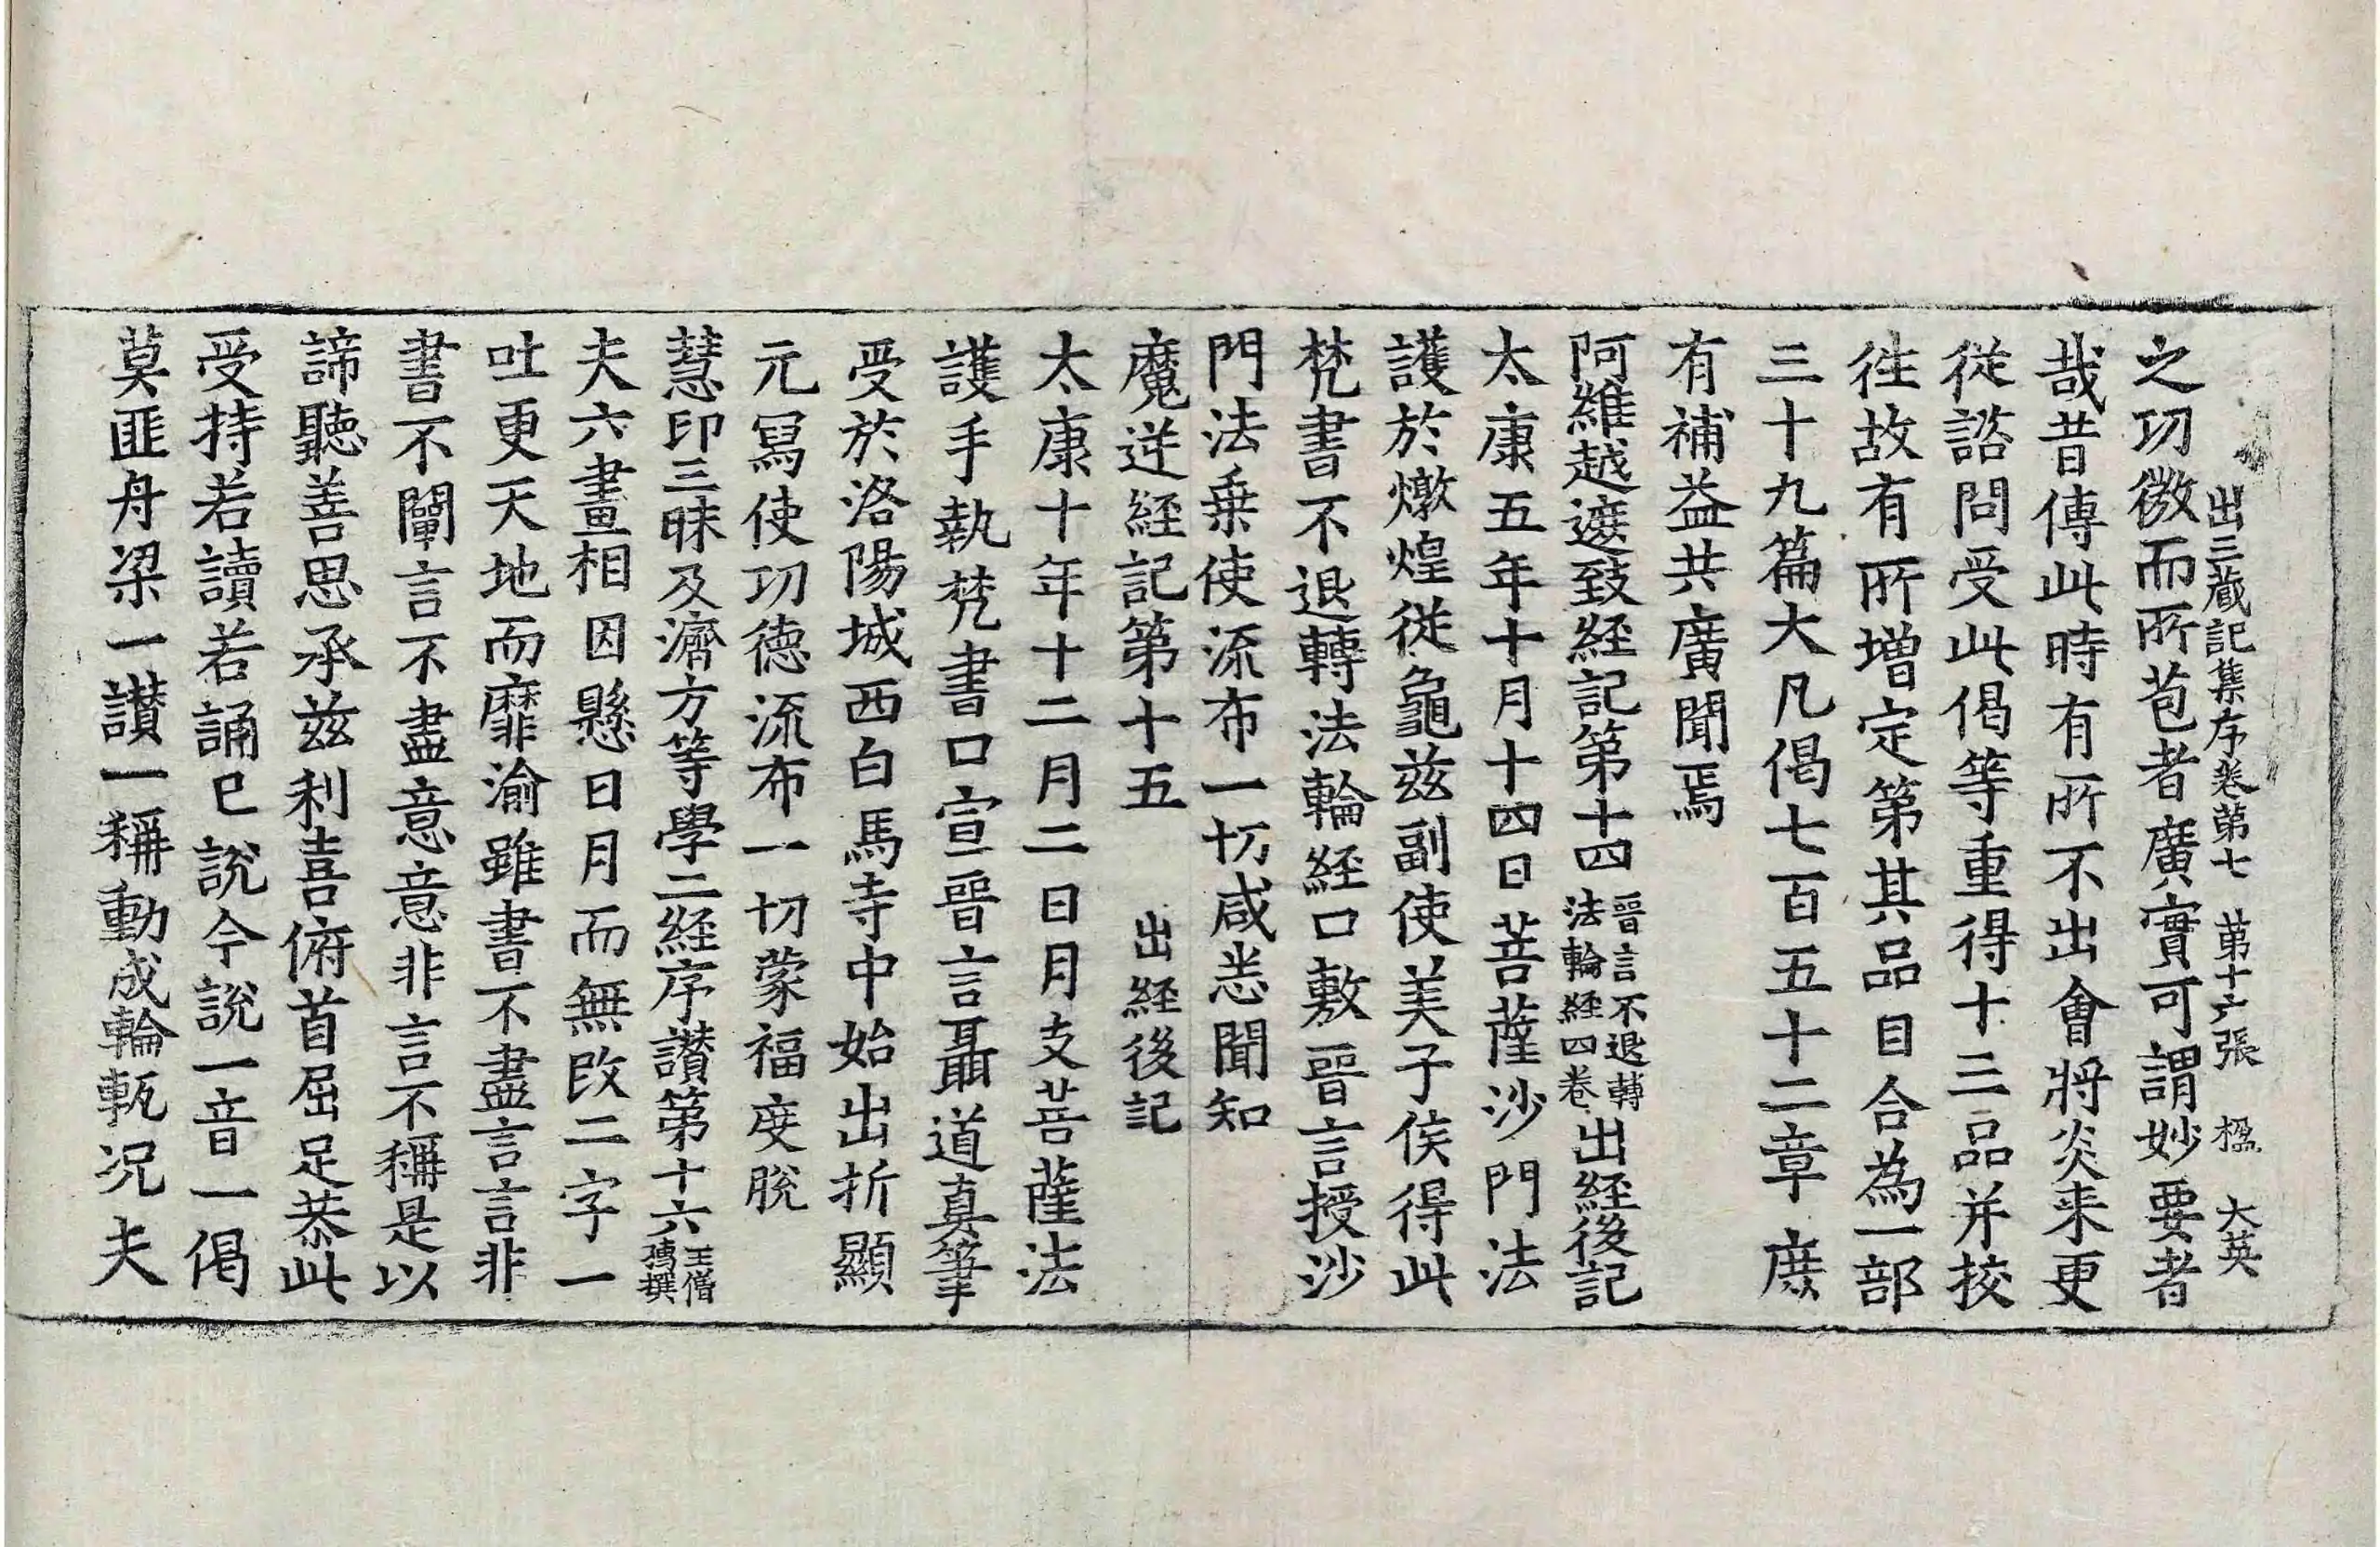 出三藏記集序卷第七　第十六張　楹　大英
之功微而所苞者廣實可謂妙要者
哉昔傳此時有所不出會將炎来更
從諮問受此偈等重得十三品并挍
往故有所增定第其品目合為一部
三十九篇大凡偈七百五十二章庻
有補益共廣聞焉
阿維越遮致経記第十四晉言不退轉法輪経四卷出経後記
太康五年十月十四日菩薩沙門法
護於燉煌從龜兹副使美子侯得此
梵書不退轉法輪経口敷晉言授沙
門法乗使流布一切咸悉聞知
魔逆経記第十五　出経後記
太康十年十二月二日月支菩薩法
護手執梵書口宣晉言聶道真筆
受於洛陽城西白馬寺中始出折顯
元冩使功德流布一切蒙福度脫
慧印三昧及濟方等學二経序讃第十六王僧孺撰
夫六畫相因懸日月而無改二字一
吐更天地而靡渝雖書不盡言言非
書不闡言不盡意意非言不稱是以
諦聽善思承兹利喜俯首屈足恭此
受持若讀若誦已說今說一音一偈
莫匪舟梁一讃一稱動成輪軏况夫